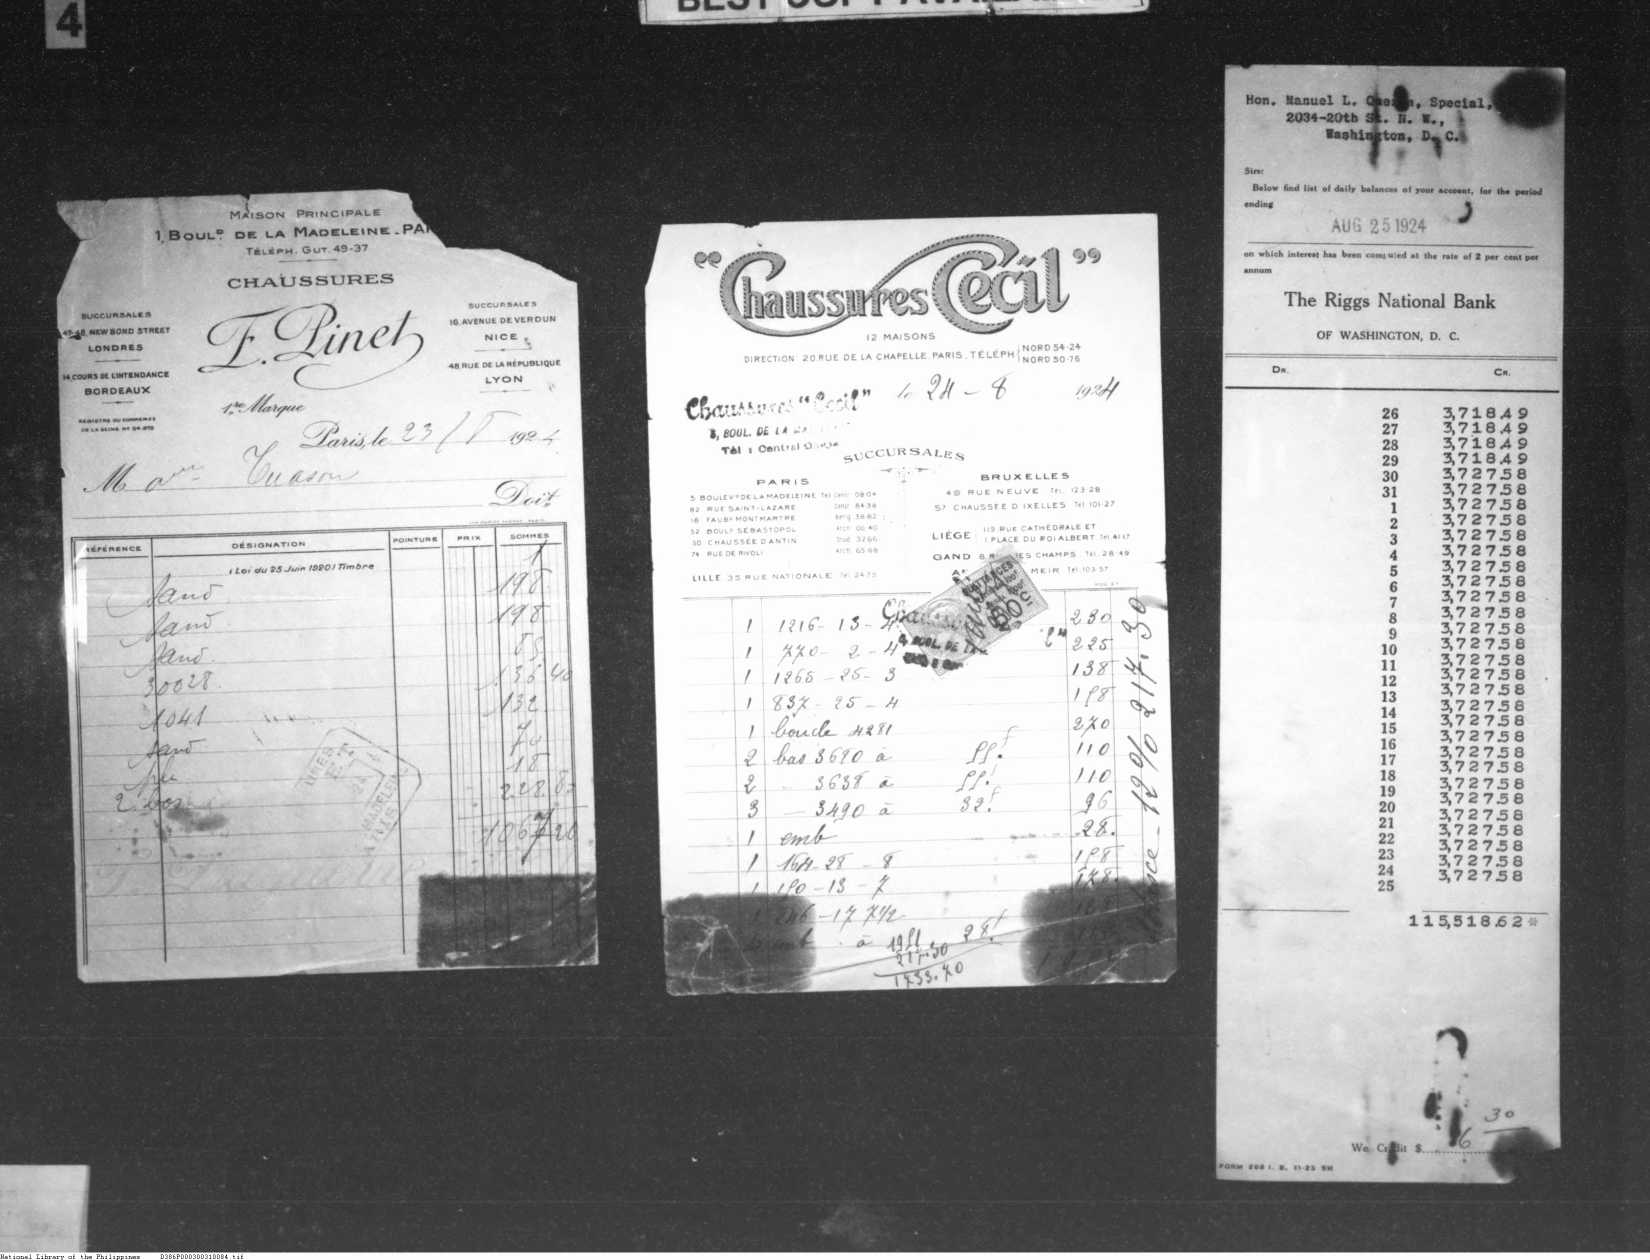 4
BEST COPY AVAILABLE
MAISON PRINCIPALE
1, BOULD DE LA MADELEINE_PAR
TÉLÉPH. GUT. 49-37
CHAUSSURES
F. Pinet
1re Marque
SUCCURSALES
47-48, NEW BOND STREET
LONDRES
14 COURS DE L'INTENDANCE
BORDEAUX
REGISTRE DU COMMERCE
DE LA SEINE No
SUCCURSALES
16, AVENUE DE VERDUN
NICE
48 RUE DE LA RÉPUBLIQUE
LYON
Paris, le 23/8 1924
M Tuason
Doit
RÉFÉRENCE DÉSIGNATION POINTURE PRIX SOMMES
(Loi du 25 Juin 1920) Timbre 1
198
198
30028 136 40
1041 132
70
18
228 80
1067 20
"Chaussures Cecil"
12 MAISONS
DIRECTION 20 RUE DE LA CHAPELLE PARIS. TÉLÉPH NORD 54-24
NORD 50-76
le 24 - 8 1924
Chaussures "Cecil"
BOUL. DE LA
Tél : Central
SUCCURSALES
PARIS
5 BOULEVD DE LA MADELEINE Tél Centr 08 04
82 RUE SAINT-LAZARE Centr 84 36
16 FAUBG MONTMARTRE Berg 36 82
52 BOULD SÉBASTOPOL Arch 00 40
30 CHAUSSÉE D'ANTIN Trud 32 66
74 RUE DE RIVOLI Arch 65 68
LILLE 35 RUE NATIONALE Tél 24 75
BRUXELLES
49 RUE NEUVE Tél. 123-28
57 CHAUSSÉE D'IXELLES Tél 101-27
LIÈGE 119 RUE CATHÉDRALE ET
1 PLACE DU ROI ALBERT Tél 4117
GAND RUE DES CHAMPS. Tél. 28-49
MEIR Tél: 103-57
50c
1 1216 - 13 - 4 230
1 770 - 2 - 4 225
1 1265 - 25 - 3 138
1 837 - 25 - 4 198
1 boucle 4281 270
2 bas 3690 à 55f 110
2 - 3638 à 55f 110
3 - 3490 à 32f 96
1 emb 28.
1 164-28 - 8 198
1 190-13 - 7 178.
1 246 - 17 7 1/2
emb à 28f
1951
217.30
1733.70
12% 217.30
Hon. Manuel L. Quezon, Special,
2034-20th St. N. W.,
Washington, D. C.
Sirs:
Below find list of daily balances of your account, for the period
ending
AUG 25 1924
on which interest has been computed at the rate of 2 per cent per
annum
The Riggs National Bank
OF WASHINGTON, D. C.
DR. CR.
26 3,718.49
27 3,718.49
28 3,718.49
29 3,718.49
30 3,727.58
31 3,727.58
1 3,727.58
2 3,727.58
3 3,727.58
4 3,727.58
5 3,727.58
6 3,727.58
7 3,727.58
8 3,727.58
9 3,727.58
10 3,727.58
11 3,727.58
12 3,727.58
13 3,727.58
14 3,727.58
15 3,727.58
16 3,727.58
17 3,727.58
18 3,727.58
19 3,727.58
20 3,727.58
21 3,727.58
22 3,727.58
23 3,727.58
24 3,727.58
25
115,518.62*
We Credit $ 6 30
FORM 208 I. B. 11-23 5M
National Library of the Philippines D386P000300310084.tif